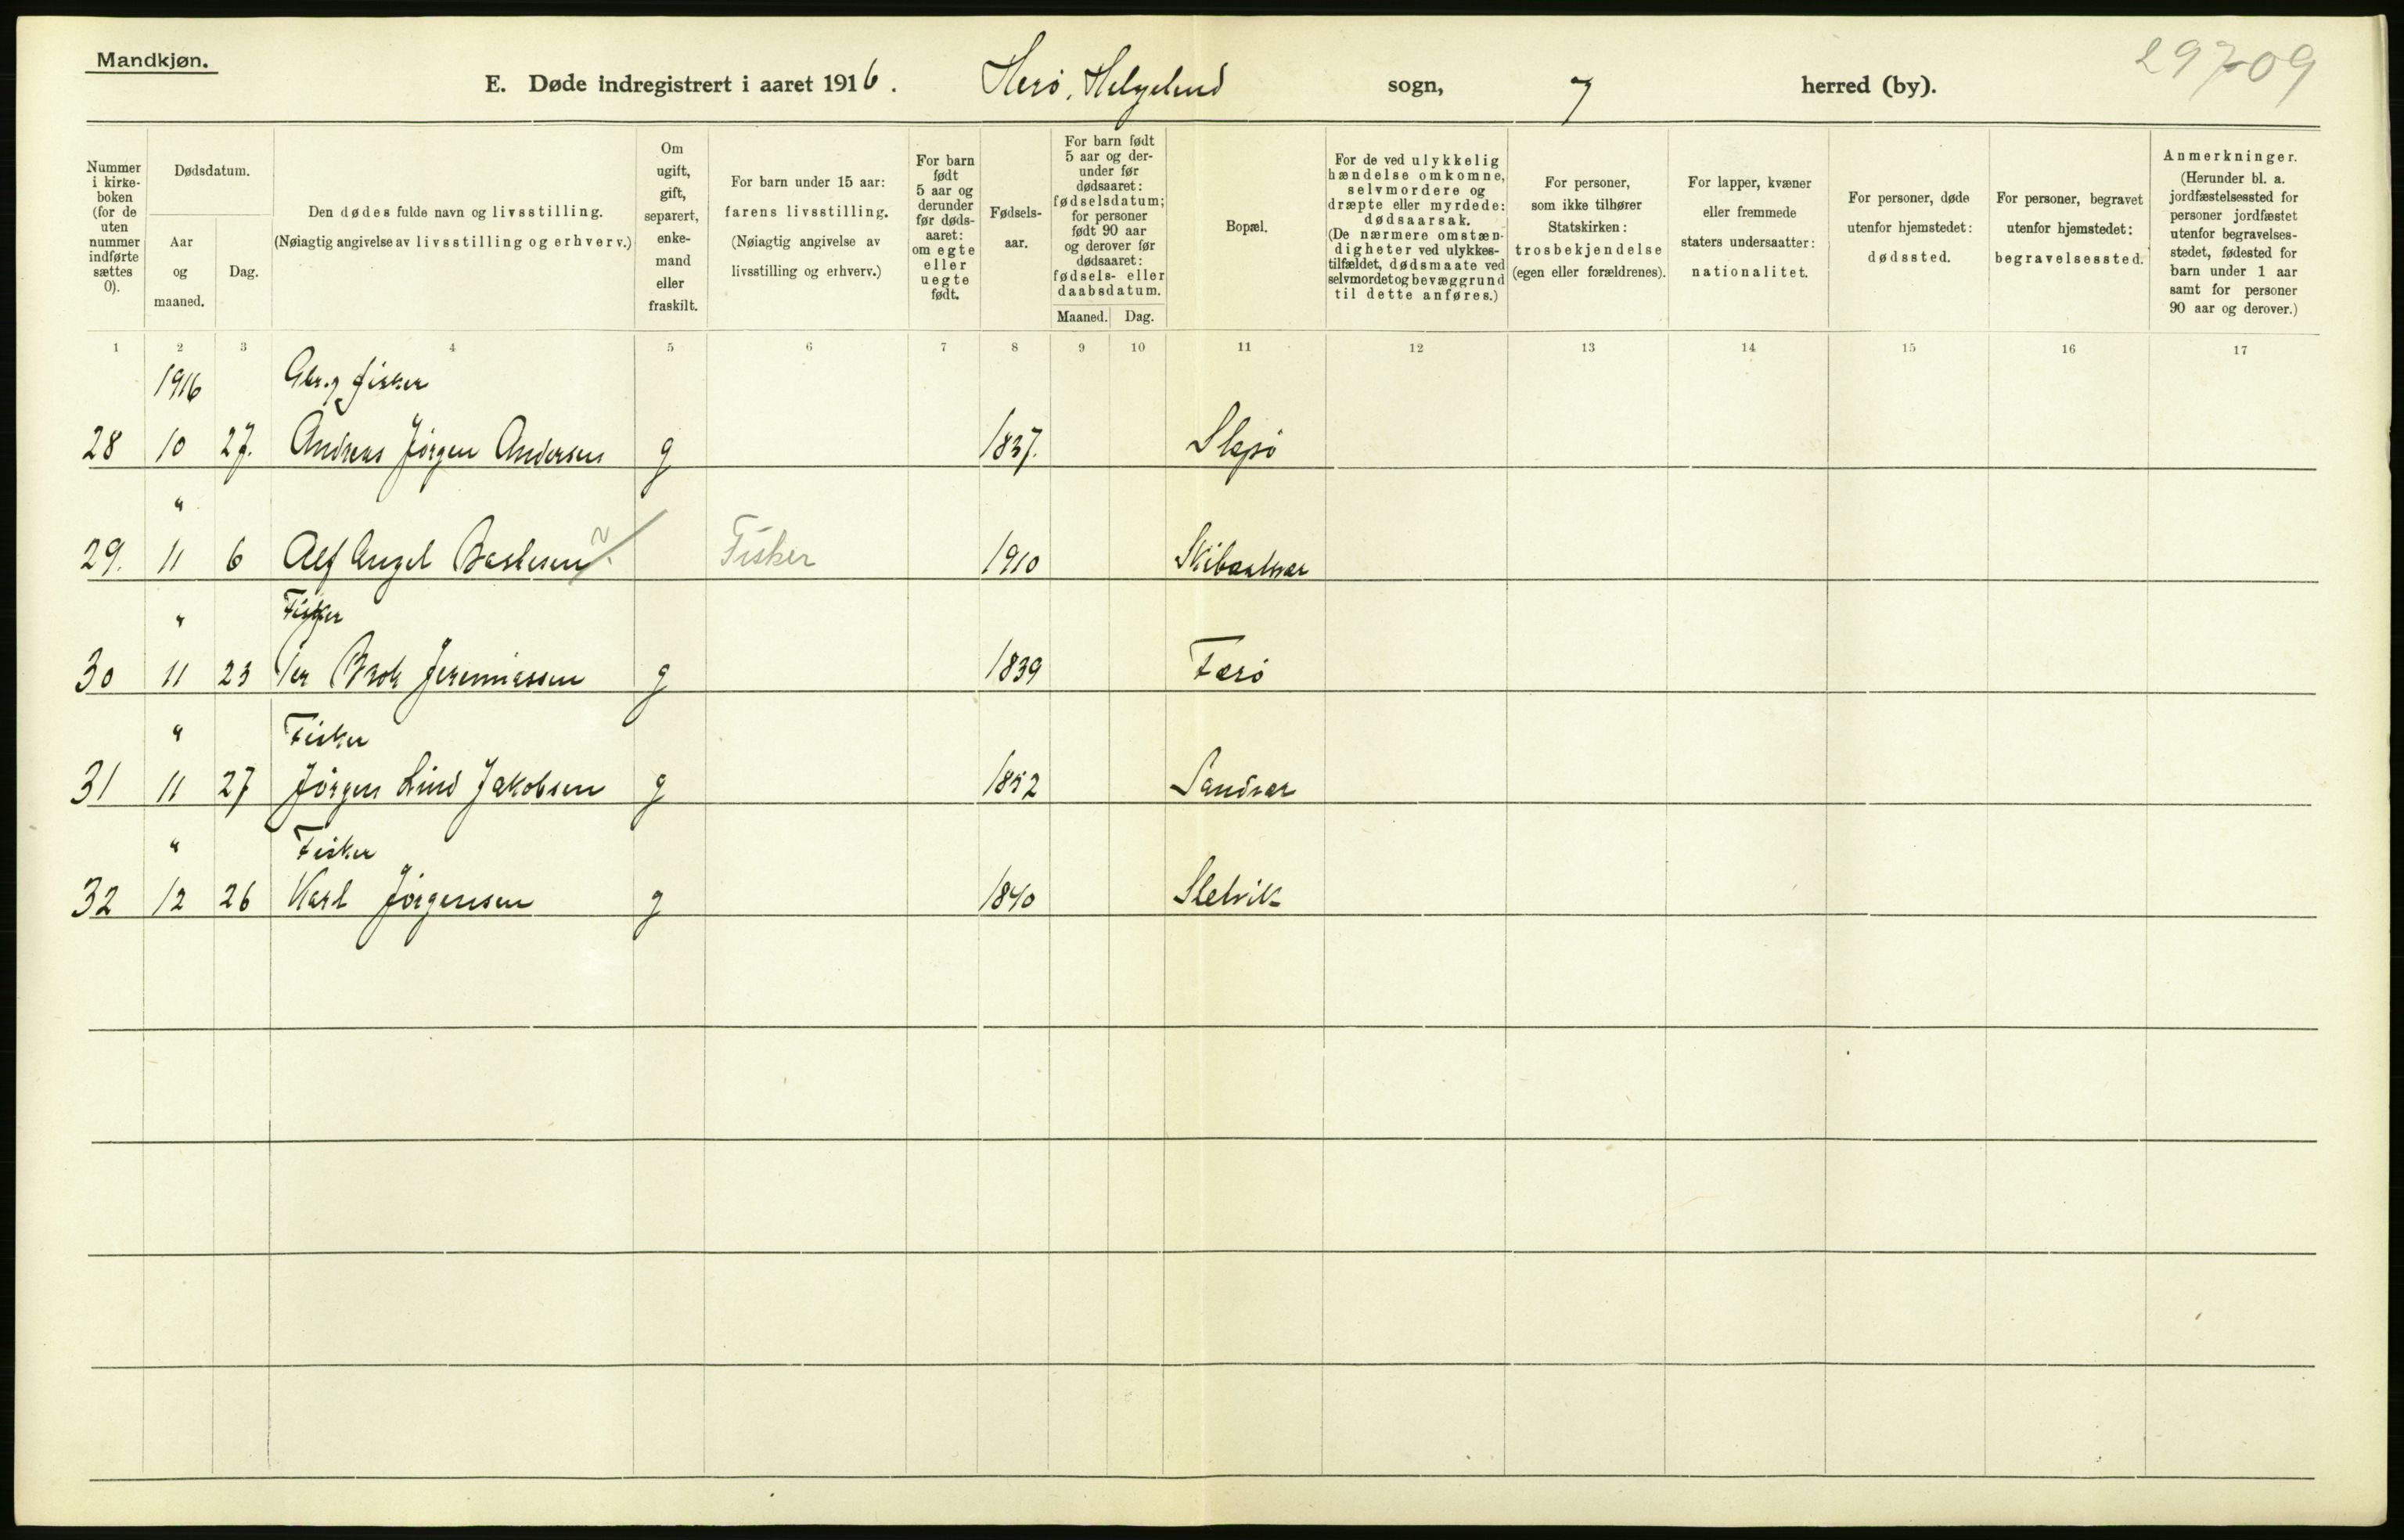 Mandkjøn.
29709
E. Døde indregistrert i aaret 1916. Herö, Helgeland sogn, " herred (by).
Nummer i kirke- boken (for de uten nummer indførte sættes 0).
Dødsdatum.
Aar og maaned.
Dag.
Den dødes fulde navn og livsstilling.
(Nøiagtig angivelse av livsstilling og erhverv.)
Om ugift, gift, separert, enke- mand eller fraskilt.
For barn under 15 aar: farens livsstilling. (Nøiagtig angivelse av livsstilling og erhverv.)
For barn født 5 aar og derunder før døds- aaret: om egte eller uegte født.
Fødsels- aar.
For barn født 5 aar og der- under før dødsaaret: fødselsdatum; for personer født 90 aar og derover før dødsaaret: fødsels- eller daabsdatum.
Maaned. Dag.
Bopæl.
For de ved ulykkelig hændelse omkomne, selvmordere og dræpte eller myrdede: dødsaarsak. (De nærmere omstæn- digheter ved ulykkes- tilfældet, dødsmaate ved selvmordet og bevæggrund til dette anføres.)
For personer, som ikke tilhører Statskirken: trosbekjendelse (egen eller forældrenes).
For lapper, kvæner eller fremmede staters undersaatter: nationalitet.
For personer, døde utenfor hjemstedet: dødssted.
For personer, begravet utenfor hjemstedet: begravelsessted.
Anmerkninger. (Herunder bl. a. jordfæstelsessted for personer jordfæstet utenfor begravelses- stedet, fødested for barn under 1 aar samt for personer 90 aar og derover.)
1 2 3 4 5 6 7 8 9 10 11 12 13 14 15 16 17
1916 Gbr. fisker
28 10 27. Andreas Jörgen Andersen g 1837.
"
29. 11 6 Alf Angel Bastesen Fisker 1910
" Fisker
30 11 23 Per Brok Jeremiassen g 1839 Færö
" Fisker
31 11 27 Jörgen Lind Jakobsen g 1852 Sandvær
" Fisker
32 12 26 Karl Jörgensen g 1840 Sletvik